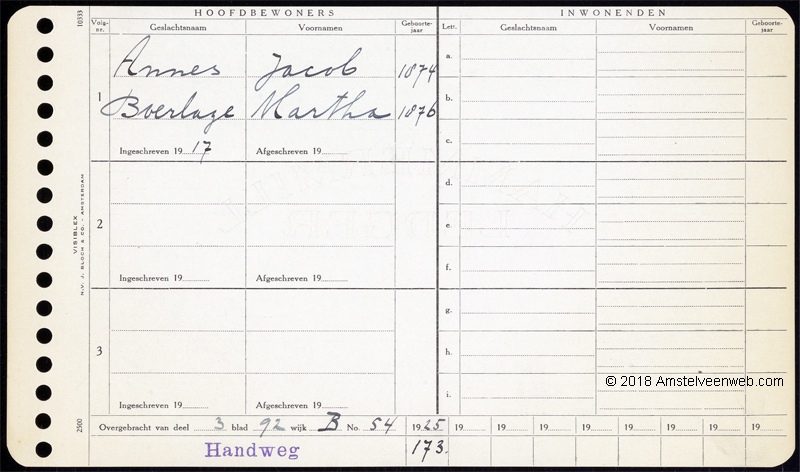 HOOFDBEWONERS
INWONENDEN
10333
Volg-nr.
Geslachtsnaam
Voornamen
Geboorte-jaar
Lett.
Geslachtsnaam
Voornamen
Geboorte-jaar
1
Annes Jacob 1874
Boerlage Martha 1876
Ingeschreven 19 17
Afgeschreven 19
2
Ingeschreven 19
Afgeschreven 19
3
Ingeschreven 19
Afgeschreven 19
a.
b.
c.
d.
e.
f.
g.
h.
i.
VISIBLEX
N.V. J. BLOCH & CO. - AMSTERDAM
2500
© 2018 Amstelveenweb.com
Overgebracht van deel 3 blad 92 wijk B No. 54
1925 19 19 19 19 19 19 19 19
Handweg
173.